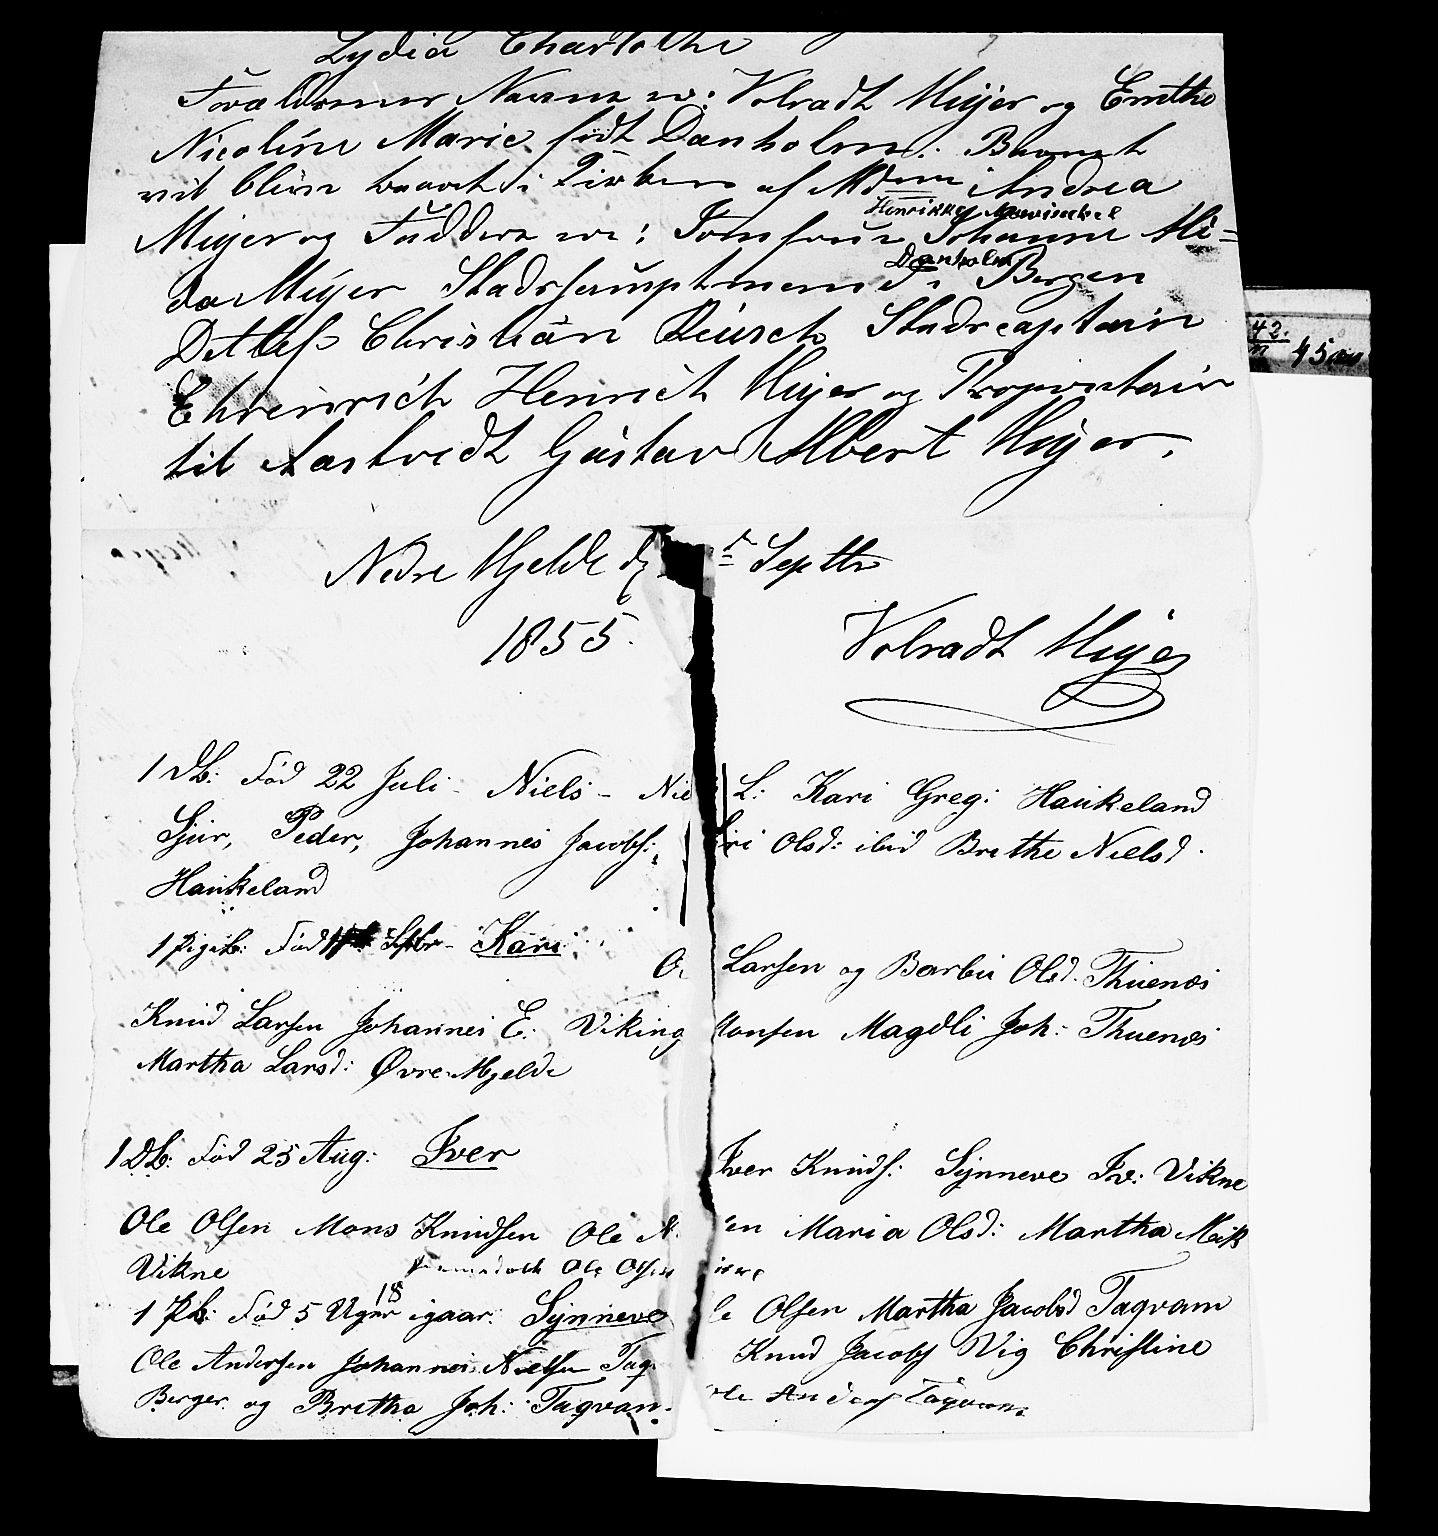 Lydia Charlothe
Forældrenes Navne er: Volradt Meyer og Emthe
Nicoline Marie født Danholm. Barnet
vil blive baaret i Kirken af Mdme Andrea
Henrikke Mowinckel
Meyer og Faddere ere: Jomfrue Johanne Mi=
Danholm
da Meyer Stadshauptmend i Bergen
Ditlef Christian Reusch Stadscaptain
Ehrenrich Henrich Meyer og Proprietair
til Aastvedt Gustav Albert Meyer.
Nedre Mjelde d Septbr
1855.
Volradt Meyer
1 Db: Fød 22 Juli - Niels - Nie L: Kari Greg: Haukeland
Sjur, Peder, Johannes Jacobs: ri Olsd: ibid Brithe Nielsd.
Haukeland
1 Pigeb: Fød Septbr - Kari O Larsen og Barbu Olsd. Thuenæs
Knud Larsen Johannes E. Viking Monsen Magdli Joh: Thuenæs
Martha Larsd: Øvre-Mjelde
1 Db: Fød 25 Aug: Iver Iver Knuds: Synneve Iv: Vikne
Ole Olsen Mons Knudsen Ole N en Maria Olsd: Martha Mik
Vikne Ole Olsen
18
1 Pb: Fød 5 Uger igaar: Synneve le Olsen Martha Jacobsd Taqvam
Ole Andersen Johannes Nielsen Taq Knud Jacobs Vig Christine
Berger og Britha Joh: Taqvam. le Anders Taqvam